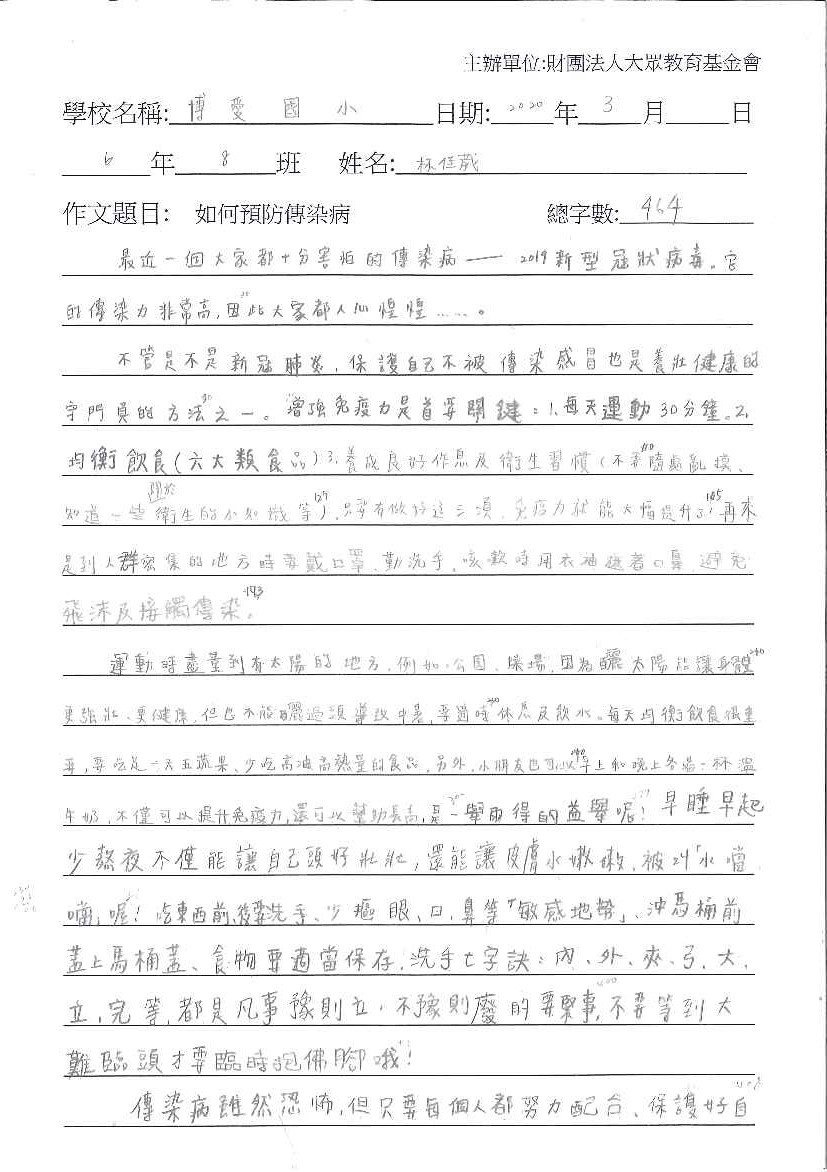 主辦單位:財團法人大眾教育基金會
學校名稱: 博愛國小 日期: 2020 年 3 月 日
6 年 8 班 姓名: 林佳葳
作文題目: 如何預防傳染病 總字數: 464
最近一個大家都十分害怕的傳染病——2019新型冠狀病毒。它
的傳染力非常高,因此大家都人心惶惶……。
不管是不是新冠肺炎,保護自己不被傳染感冒也是養壯健康的
守門員的方法之一。增強免疫力是首要關鍵:1.每天運動30分鐘。2.
均衡飲食(六大類食品)3.養成良好作息及衛生習慣(不要隨處亂摸、
知道一些關於衛生的小知識等),只要有做好這三項,免疫力就能大幅提升了!再來
是到人群密集的地方時要戴口罩、勤洗手、咳嗽時用衣袖遮著口鼻,避免
飛沫及接觸傳染。
運動時盡量到有太陽的地方,例如:公園、操場,因為曬太陽能讓身體
更強壯、更健康,但也不能曬過頭導致中暑,要適時休息及飲水。每天均衡飲食很重
要,要吃足一天五蔬果、少吃高油高熱量的食品,另外,小朋友也可以早上和晚上各喝一杯溫
牛奶,不僅可以提升免疫力,還可以幫助長高,是一舉兩得的益舉呢!早睡早起
少熬夜不僅能讓自己頭好壯壯,還能讓皮膚水嫩嫩,被叫「水噹
噹」呢!吃東西前、後要洗手、少摳眼、口、鼻等「敏感地帶」、沖馬桶前
蓋上馬桶蓋、食物要適當保存,洗手七字訣:內、外、夾、弓、大、
立、完等,都是凡事豫則立,不豫則廢的要緊事,不要等到大
難臨頭才要臨時抱佛腳哦!
傳染病雖然恐怖,但只要每個人都努力配合、保護好自